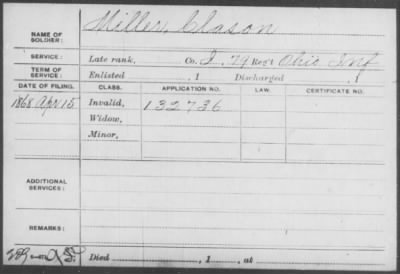 NAME OF SOLDIER: Miller, Clason
SERVICE: Late rank, Co. I, 79 Reg't Ohio Inf
TERM OF SERVICE: Enlisted , 1 Discharged , 1
DATE OF FILING. CLASS. APPLICATION NO. LAW. CERTIFICATE NO.
1868 Apr 15 Invalid, 132736
Widow,
Minor,
ADDITIONAL SERVICES:
REMARKS:
Died , 1 , at